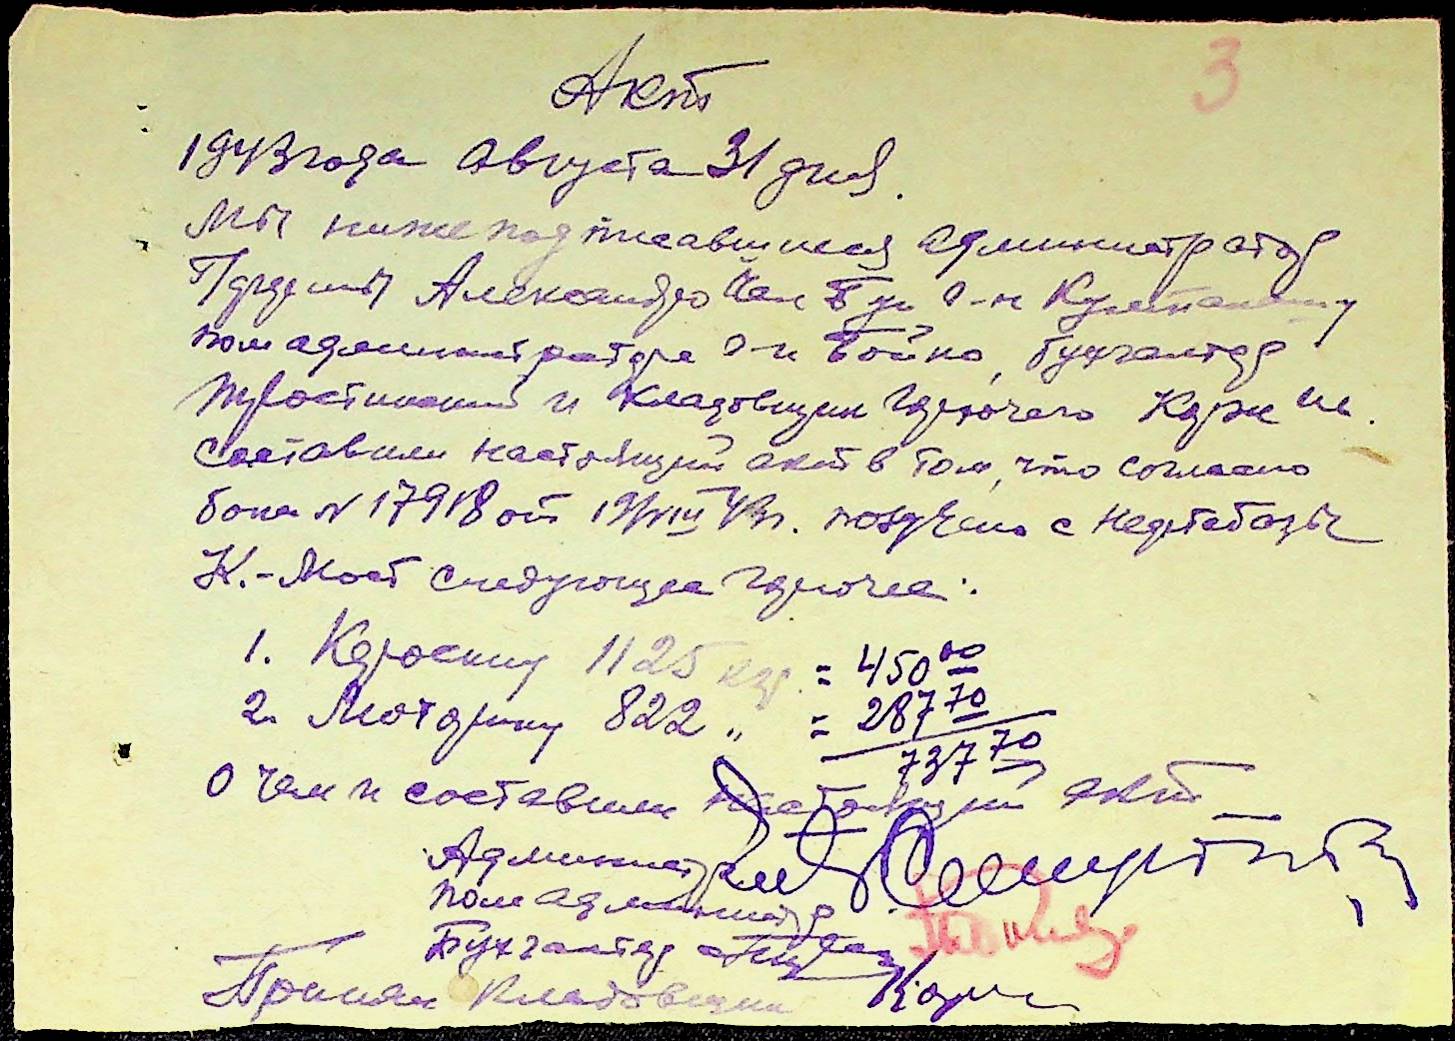 3
Акт
1943 года Августа 31 дня.
Мы ниже подписавшиеся администратор
Александро с-н
пом администратора с-н Бойко, бухгалтер
и кладовщик горючего Корж
составили настоящий акт в том, что согласно
бона N 17918 от 19/VIII 43 г. получено с Нефтебазы
К.-Мост следующее горючее:
1. Керосину 1125 кгр. = 450 00
2. Моторину 822 " = 287 70
737 70
О чем и составили настоящий акт
Админист
пом админист
Бухгалтер
Принял Кладовщик Корж